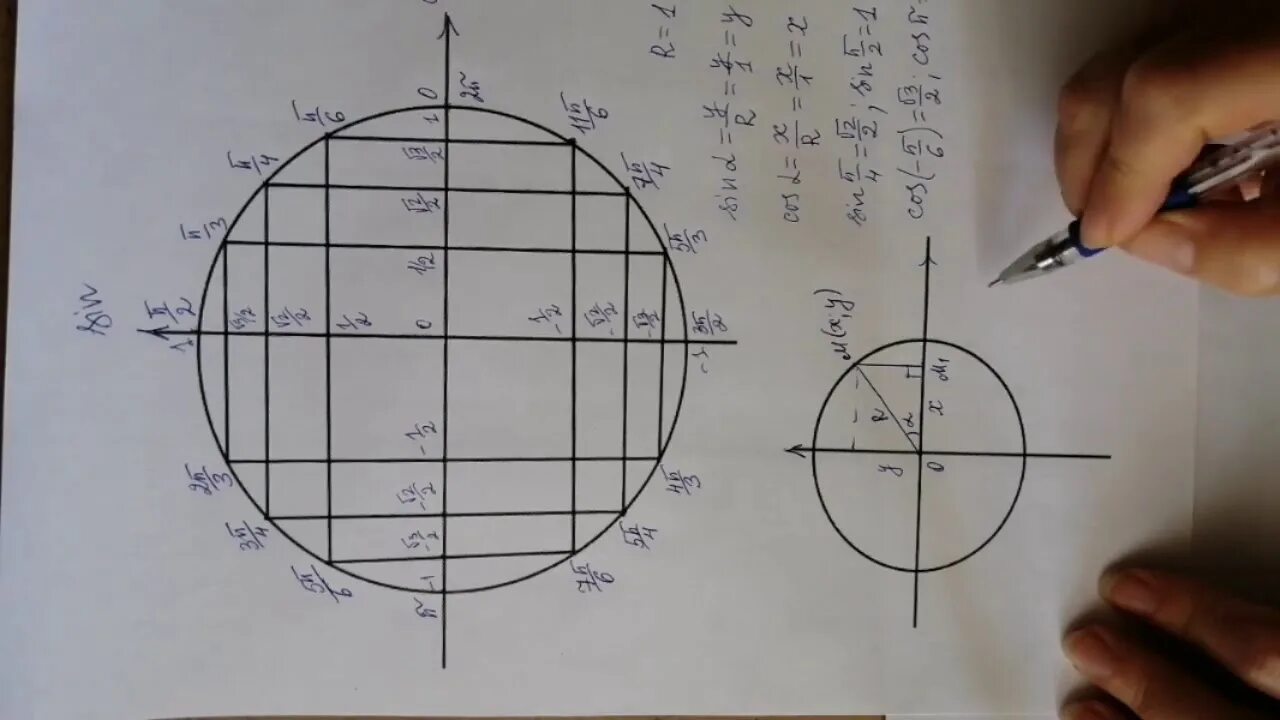 sin
π/2
1
π/3
π/4
π/6
0
2π
1
11π/6
7π/4
5π/3
3π/2
-1
4π/3
5π/4
7π/6
π
-1
5π/6
3π/4
2π/3
√3/2
√2/2
1/2
0
-1/2
-√2/2
-√3/2
-√3/2
-√2/2
-1/2
1/2
√2/2
√3/2
R = 1
sin α = y/R = y/1 = y
cos α = x/R = x/1 = x
sin π/4 = √2/2; sin π/2 = 1
cos(-π/6) = √3/2; cos π =
M(x;y)
y
R
α
O
x
M₁